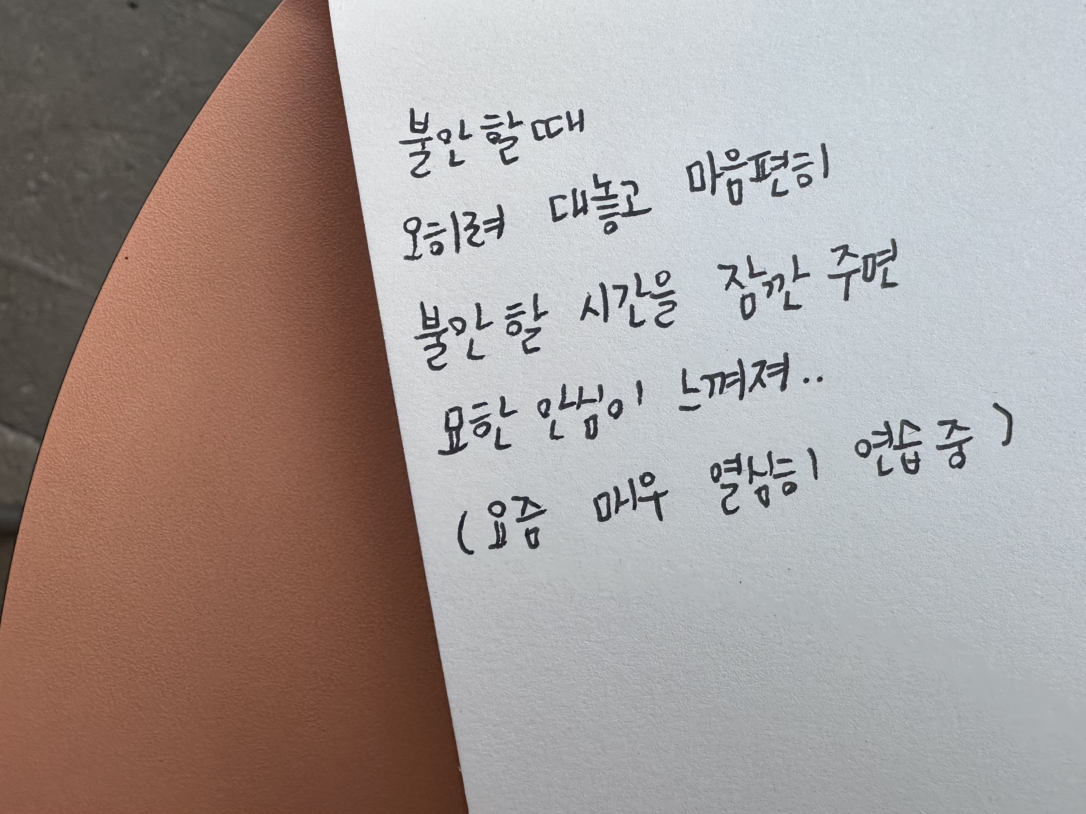 불안할 때
오히려 대놓고 마음편히
불안할 시간을 잠깐 주면
묘한 안심이 느껴져..
(요즘 매우 열심히 연습 중)